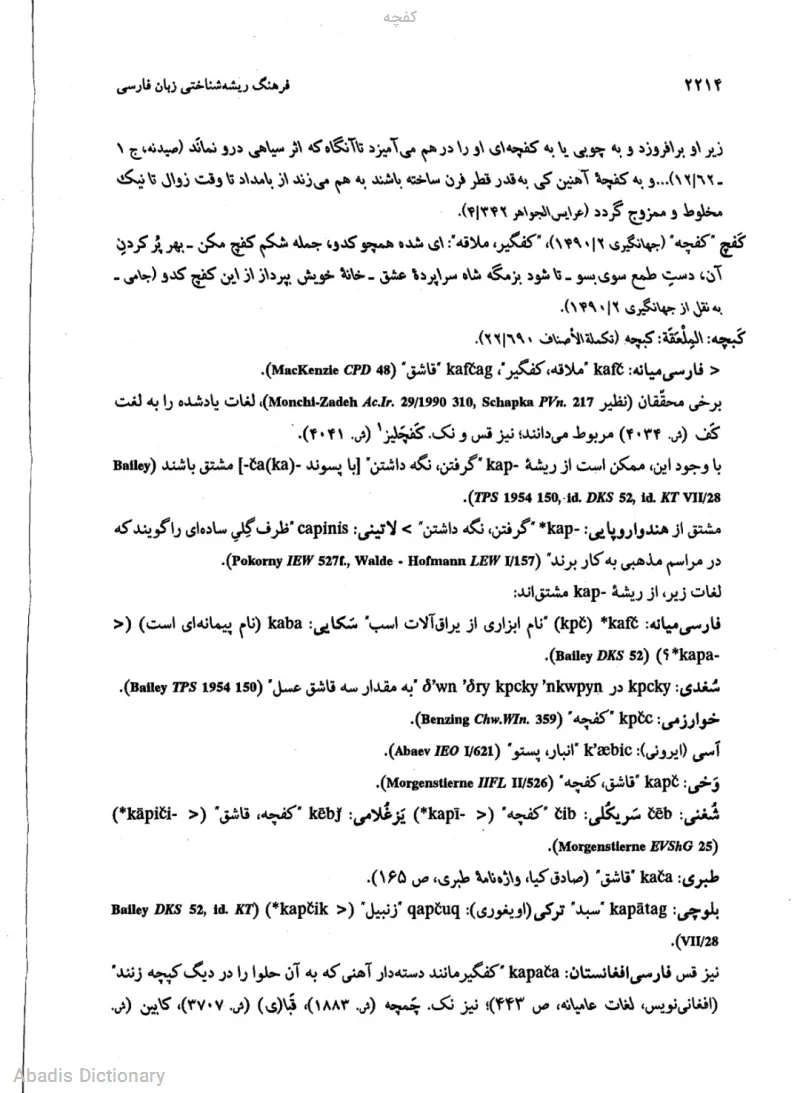 کفچه
۲۲۱۴ فرهنگ ریشه‌شناختی زبان فارسی
زیر او برافروزد و به چوبی یا به کفچه‌ای او را در هم می‌آمیزد تا آنگاه که اثر سیاهی درو نماند (صیدنه، ج ۱
ـ ۱۲/۶۲)...و به کفچهٔ آهنین کی به‌قدر قطر فرن ساخته باشند به هم می‌زند از بامداد تا وقت زوال تا نیک
مخلوط و ممزوج گردد (عرایس‌الجواهر ۴/۳۴۲).
کَفچ "کفچه" (جهانگیری ۱۴۹۰/۲)، "کفگیر، ملاقه": ای شده همچو کدو، جمله شکم کفچ مکن ـ بهر پُر کردنِ
آن، دستِ طمع سوی‌بسو ـ تا شود بزمگه شاه سراپردهٔ عشق ـ خانهٔ خویش بپرداز از این کفچ کدو (جامی ـ
به نقل از جهانگیری ۱۴۹۰/۲).
کَبچه: المِلْعَقَة: کبچه (تکملة‌الأصناف ۲۲/۶۹۰).
< فارسی‌میانه: kafč "ملاقه، کفگیر"، kafčag "قاشق" (MacKenzie CPD 48).
برخی محقّقان (نظیر Monchi-Zadeh Ac.Ir. 29/1990 310, Schapka PVn. 217)، لغات یادشده را به لغت
کَف (ش. ۴۰۳۴) مربوط می‌دانند؛ نیز قس و نک. کَفچلیز¹ (ش. ۴۰۴۱).
با وجود این، ممکن است از ریشهٔ kap- "گرفتن، نگه داشتن" [با پسوند -ča(ka)-] مشتق باشند (Bailey
TPS 1954 150, id. DKS 52, id. KT VII/28).
مشتق از هندواروپایی: *kap- "گرفتن، نگه داشتن" > لاتینی: capinis "ظرف گِلی ساده‌ای را گویند که
در مراسم مذهبی به کار برند" (Pokorny IEW 527f., Walde - Hofmann LEW I/157).
لغات زیر، از ریشهٔ kap- مشتق‌اند:
فارسی‌میانه: *kafč (kpč) "نام ابزاری از یراق‌آلات اسب" سَکایی: kaba (نام پیمانه‌ای است) (<
*kapa-؟) (Bailey DKS 52).
سُغدی: kpcky در δ’wn ’δry kpcky ’nkwpyn "به مقدار سه قاشق عسل" (Bailey TPS 1954 150).
خوارزمی: kpčc "کفچه" (Benzing Chw.WIn. 359).
آسی (ایرونی): k’æbic "انبار، پستو" (Abaev IEO I/621).
وَخی: kapč "قاشق، کفچه" (Morgenstierne IIFL II/526).
شُغنی: čēb سَریکُلی: čib "کفچه" (< *kapī-) یَزغُلامی: kēbǰ "کفچه، قاشق" (< *kāpiči-)
(Morgenstierne EVShG 25).
طبری: kača "قاشق" (صادق کیا، واژه‌نامهٔ طبری، ص ۱۶۵).
بلوچی: kapātag "سبد" ترکی(اویغوری): qapčuq "زنبیل" (< *kapčik) (Bailey DKS 52, id. KT
VII/28).
نیز قس فارسی‌افغانستان: kapača "کفگیرمانند دسته‌دار آهنی که به آن حلوا را در دیگ کپچه زنند"
(افغانی‌نویس، لغات عامیانه، ص ۴۴۳)؛ نیز نک. چَمچه (ش. ۱۸۸۳)، قَبا(ی) (ش. ۳۷۰۷)، کابین (ش.
Abadis Dictionary